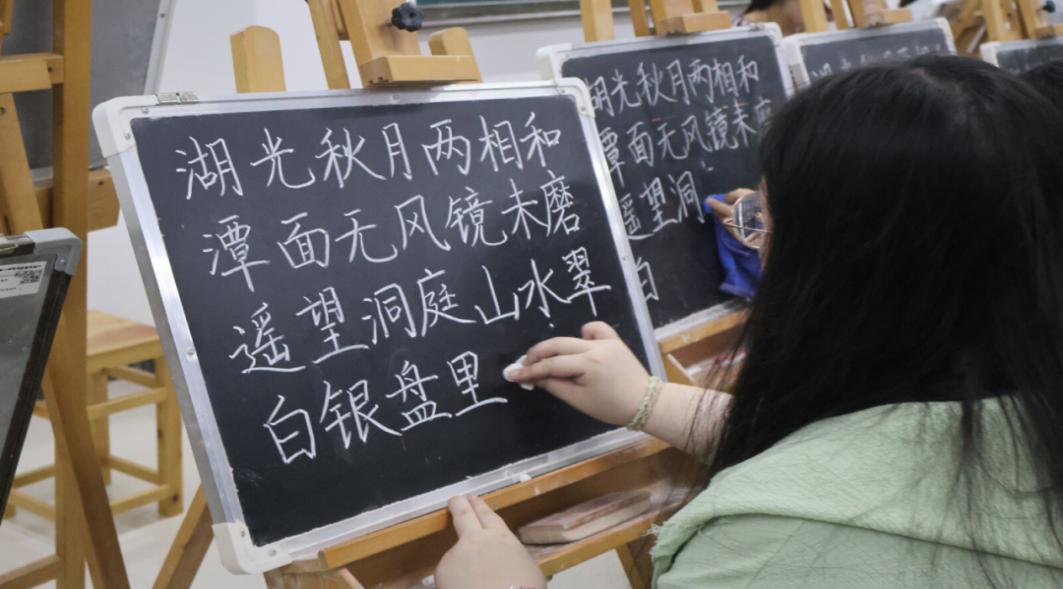 湖光秋月两相和
潭面无风镜未磨
遥望洞庭山水翠
白银盘里
湖光秋月两相和
潭面无风镜未磨
遥望洞
白